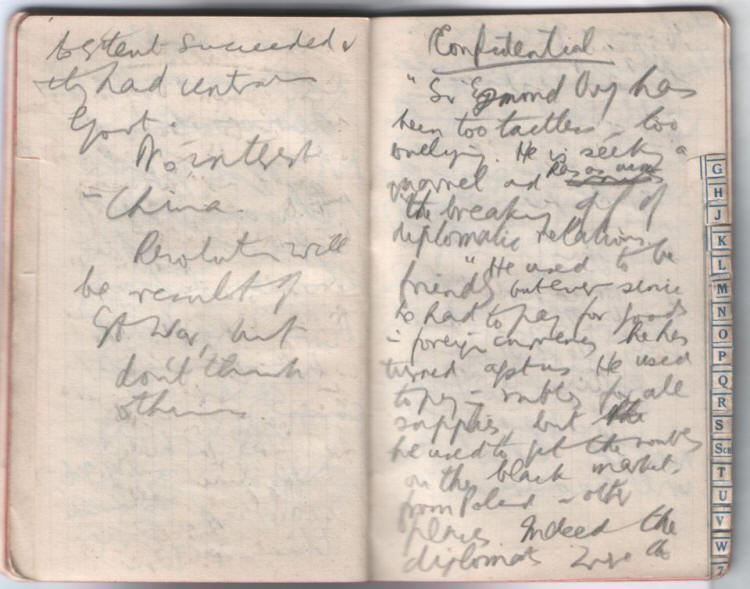 extent succeeded &
they had certain
Govt.
No interest
- China.
Revolution will
be result of
Gt War, but
don't think
otherwise.
Confidential.
"Sir Esmond Ovey has
been too tactless, too
bullying. He is seeking a
quarrel and has as aim
the breaking off of
diplomatic relations.
"He used to be
friendly but ever since
he had to pay for goods
in foreign currency he has
turned agst us. He used
to pay in roubles for all
supplies, but the
he used to get the roubles
on the black market
from Poland & other
places. Indeed the
diplomats were the
G
H
J
K
L
M
N
O
P
Q
R
S
Sch
T
U
V
W